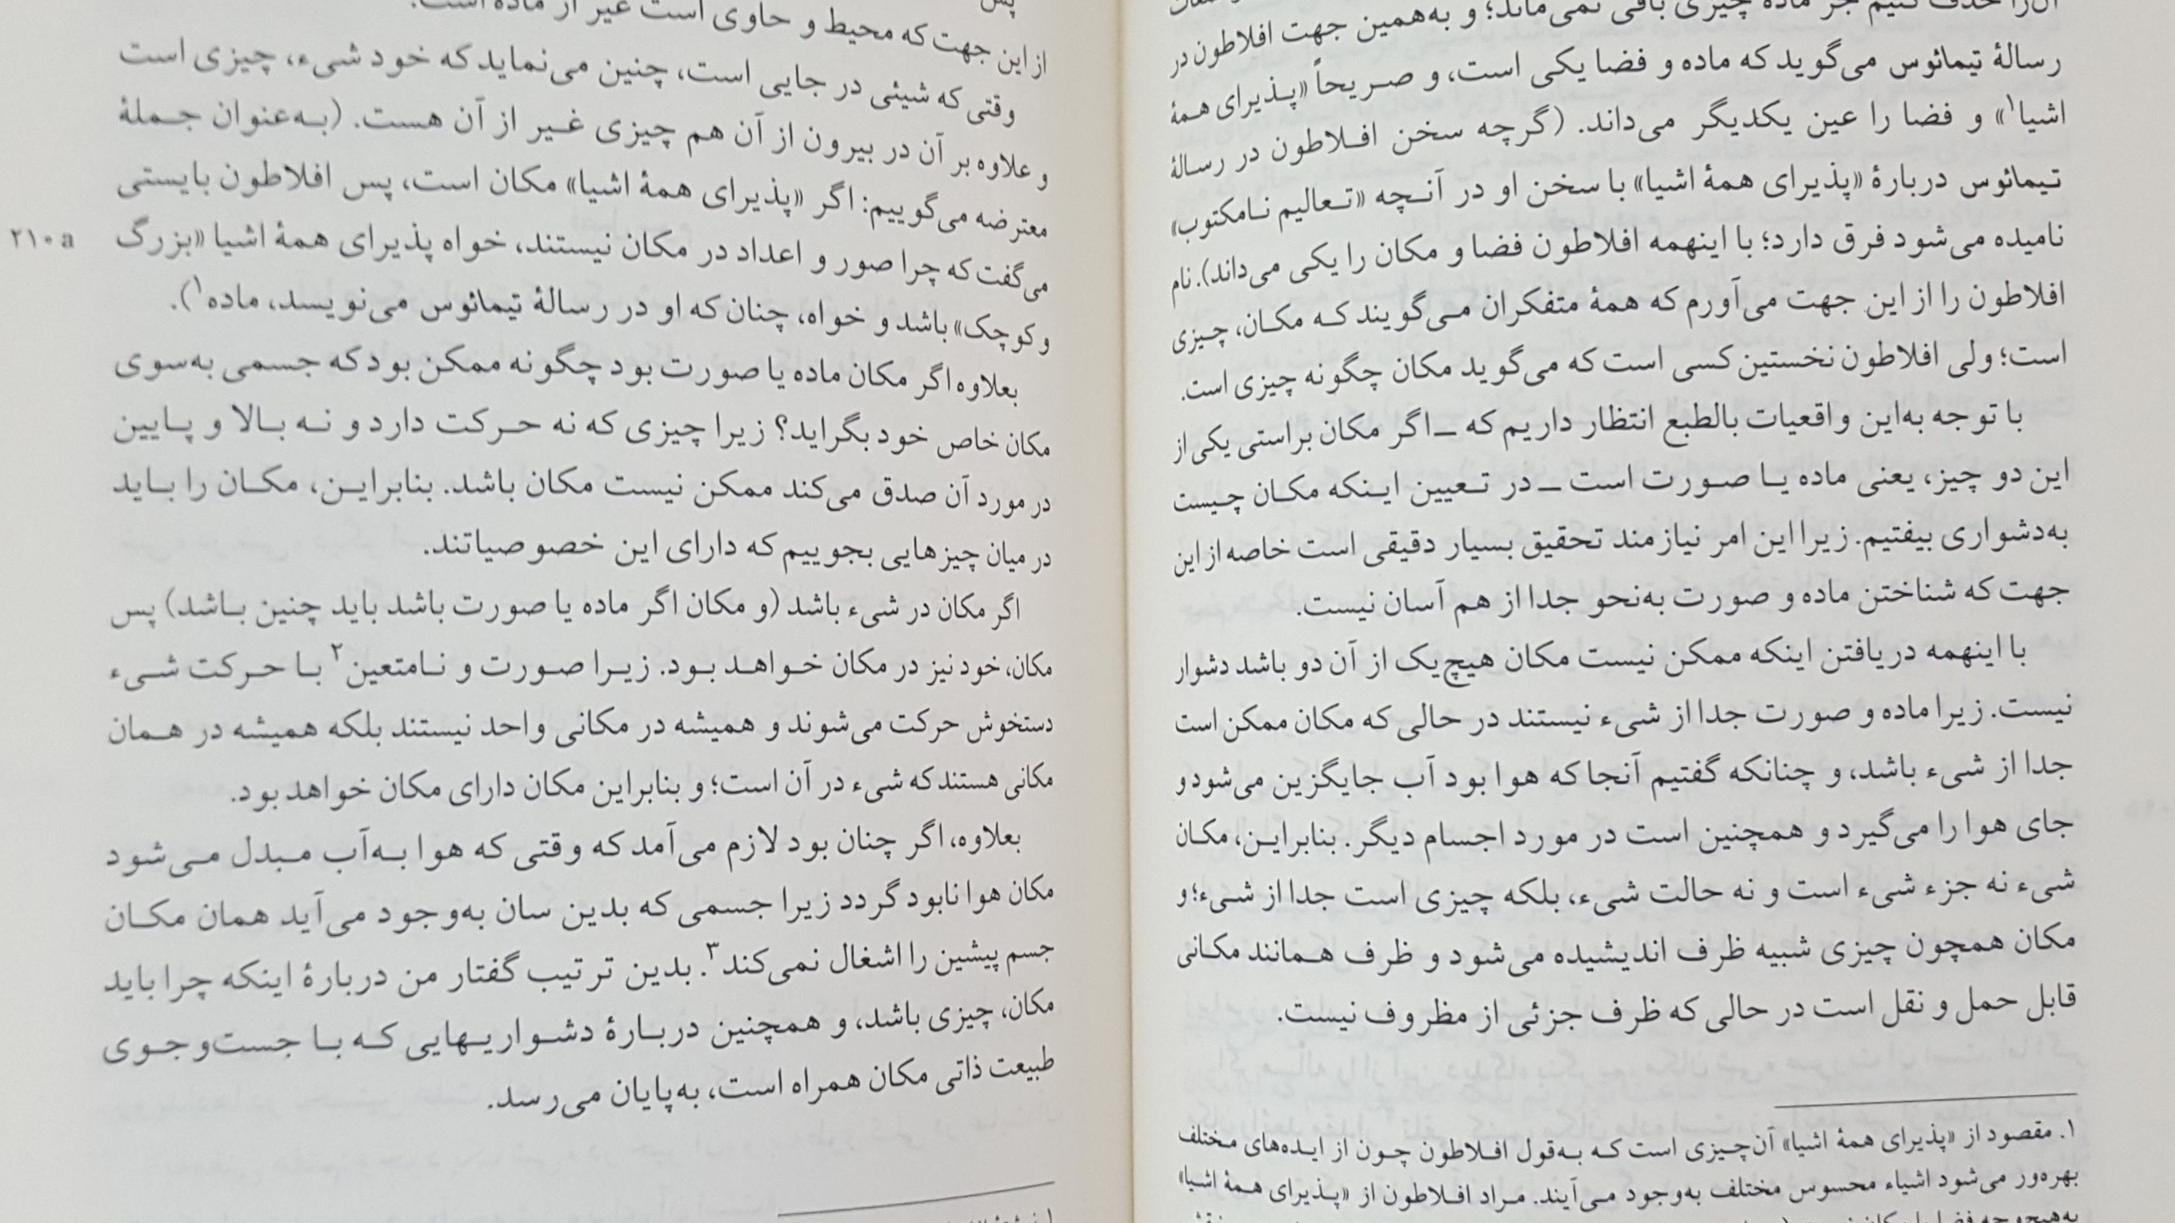 آن‌را حذف کنیم جز ماده چیزی باقی نمی‌ماند؛ و به‌همین جهت افلاطون در
رسالهٔ تیمائوس می‌گوید که ماده و فضا یکی است، و صریحاً «پذیرای همهٔ
اشیا۱» و فضا را عین یکدیگر می‌داند. (گرچه سخن افلاطون در رسالهٔ
تیمائوس دربارهٔ «پذیرای همهٔ اشیا» با سخن او در آنچه «تعالیم نامکتوب»
نامیده می‌شود فرق دارد؛ با اینهمه افلاطون فضا و مکان را یکی می‌داند). نام
افلاطون را از این جهت می‌آورم که همهٔ متفکران می‌گویند که مکان، چیزی
است؛ ولی افلاطون نخستین کسی است که می‌گوید مکان چگونه چیزی است.
با توجه به‌این واقعیات بالطبع انتظار داریم که ــ اگر مکان براستی یکی از
این دو چیز، یعنی ماده یا صورت است ــ در تعیین اینکه مکان چیست
به‌دشواری بیفتیم. زیرا این امر نیازمند تحقیق بسیار دقیقی است خاصه از این
جهت که شناختن ماده و صورت به‌نحو جدا از هم آسان نیست.
با اینهمه دریافتن اینکه ممکن نیست مکان هیچ‌یک از آن دو باشد دشوار
نیست. زیرا ماده و صورت جدا از شیء نیستند در حالی که مکان ممکن است
جدا از شیء باشد، و چنانکه گفتیم آنجا که هوا بود آب جایگزین می‌شود و
جای هوا را می‌گیرد و همچنین است در مورد اجسام دیگر. بنابراین، مکان
شیء نه جزء شیء است و نه حالت شیء، بلکه چیزی است جدا از شیء؛ و
مکان همچون چیزی شبیه ظرف اندیشیده می‌شود و ظرف همانند مکانی
قابل حمل و نقل است در حالی که ظرف جزئی از مظروف نیست.
۱. مقصود از «پذیرای همهٔ اشیا» آن‌چیزی است که به‌قول افلاطون چون از ایده‌های مختلف
بهره‌ور می‌شود اشیاء محسوس مختلف به‌وجود می‌آیند. مراد افلاطون از «پذیرای همهٔ اشیا»
به‌هیچ‌وجه فضا یا مکان
پس
از این جهت که محیط و حاوی است غیر از ماده است.
وقتی که شیئی در جایی است، چنین می‌نماید که خود شیء، چیزی است
و علاوه بر آن در بیرون از آن هم چیزی غیر از آن هست. (به‌عنوان جملهٔ
معترضه می‌گوییم: اگر «پذیرای همهٔ اشیا» مکان است، پس افلاطون بایستی
می‌گفت که چرا صور و اعداد در مکان نیستند، خواه پذیرای همهٔ اشیا «بزرگ
۲۱۰a
و کوچک» باشد و خواه، چنان که او در رسالهٔ تیمائوس می‌نویسد، ماده۱).
بعلاوه اگر مکان ماده یا صورت بود چگونه ممکن بود که جسمی به‌سوی
مکان خاص خود بگراید؟ زیرا چیزی که نه حرکت دارد و نه بالا و پایین
در مورد آن صدق می‌کند ممکن نیست مکان باشد. بنابراین، مکان را باید
در میان چیزهایی بجوییم که دارای این خصوصیاتند.
اگر مکان در شیء باشد (و مکان اگر ماده یا صورت باشد باید چنین باشد) پس
مکان، خود نیز در مکان خواهد بود. زیرا صورت و نامتعین۲ با حرکت شیء
دستخوش حرکت می‌شوند و همیشه در مکانی واحد نیستند بلکه همیشه در همان
مکانی هستند که شیء در آن است؛ و بنابراین مکان دارای مکان خواهد بود.
بعلاوه، اگر چنان بود لازم می‌آمد که وقتی که هوا به‌آب مبدل می‌شود
مکان هوا نابود گردد زیرا جسمی که بدین سان به‌وجود می‌آید همان مکان
جسم پیشین را اشغال نمی‌کند۳. بدین ترتیب گفتار من دربارهٔ اینکه چرا باید
مکان، چیزی باشد، و همچنین دربارهٔ دشواریهایی که با جست‌وجوی
طبیعت ذاتی مکان همراه است، به‌پایان می‌رسد.